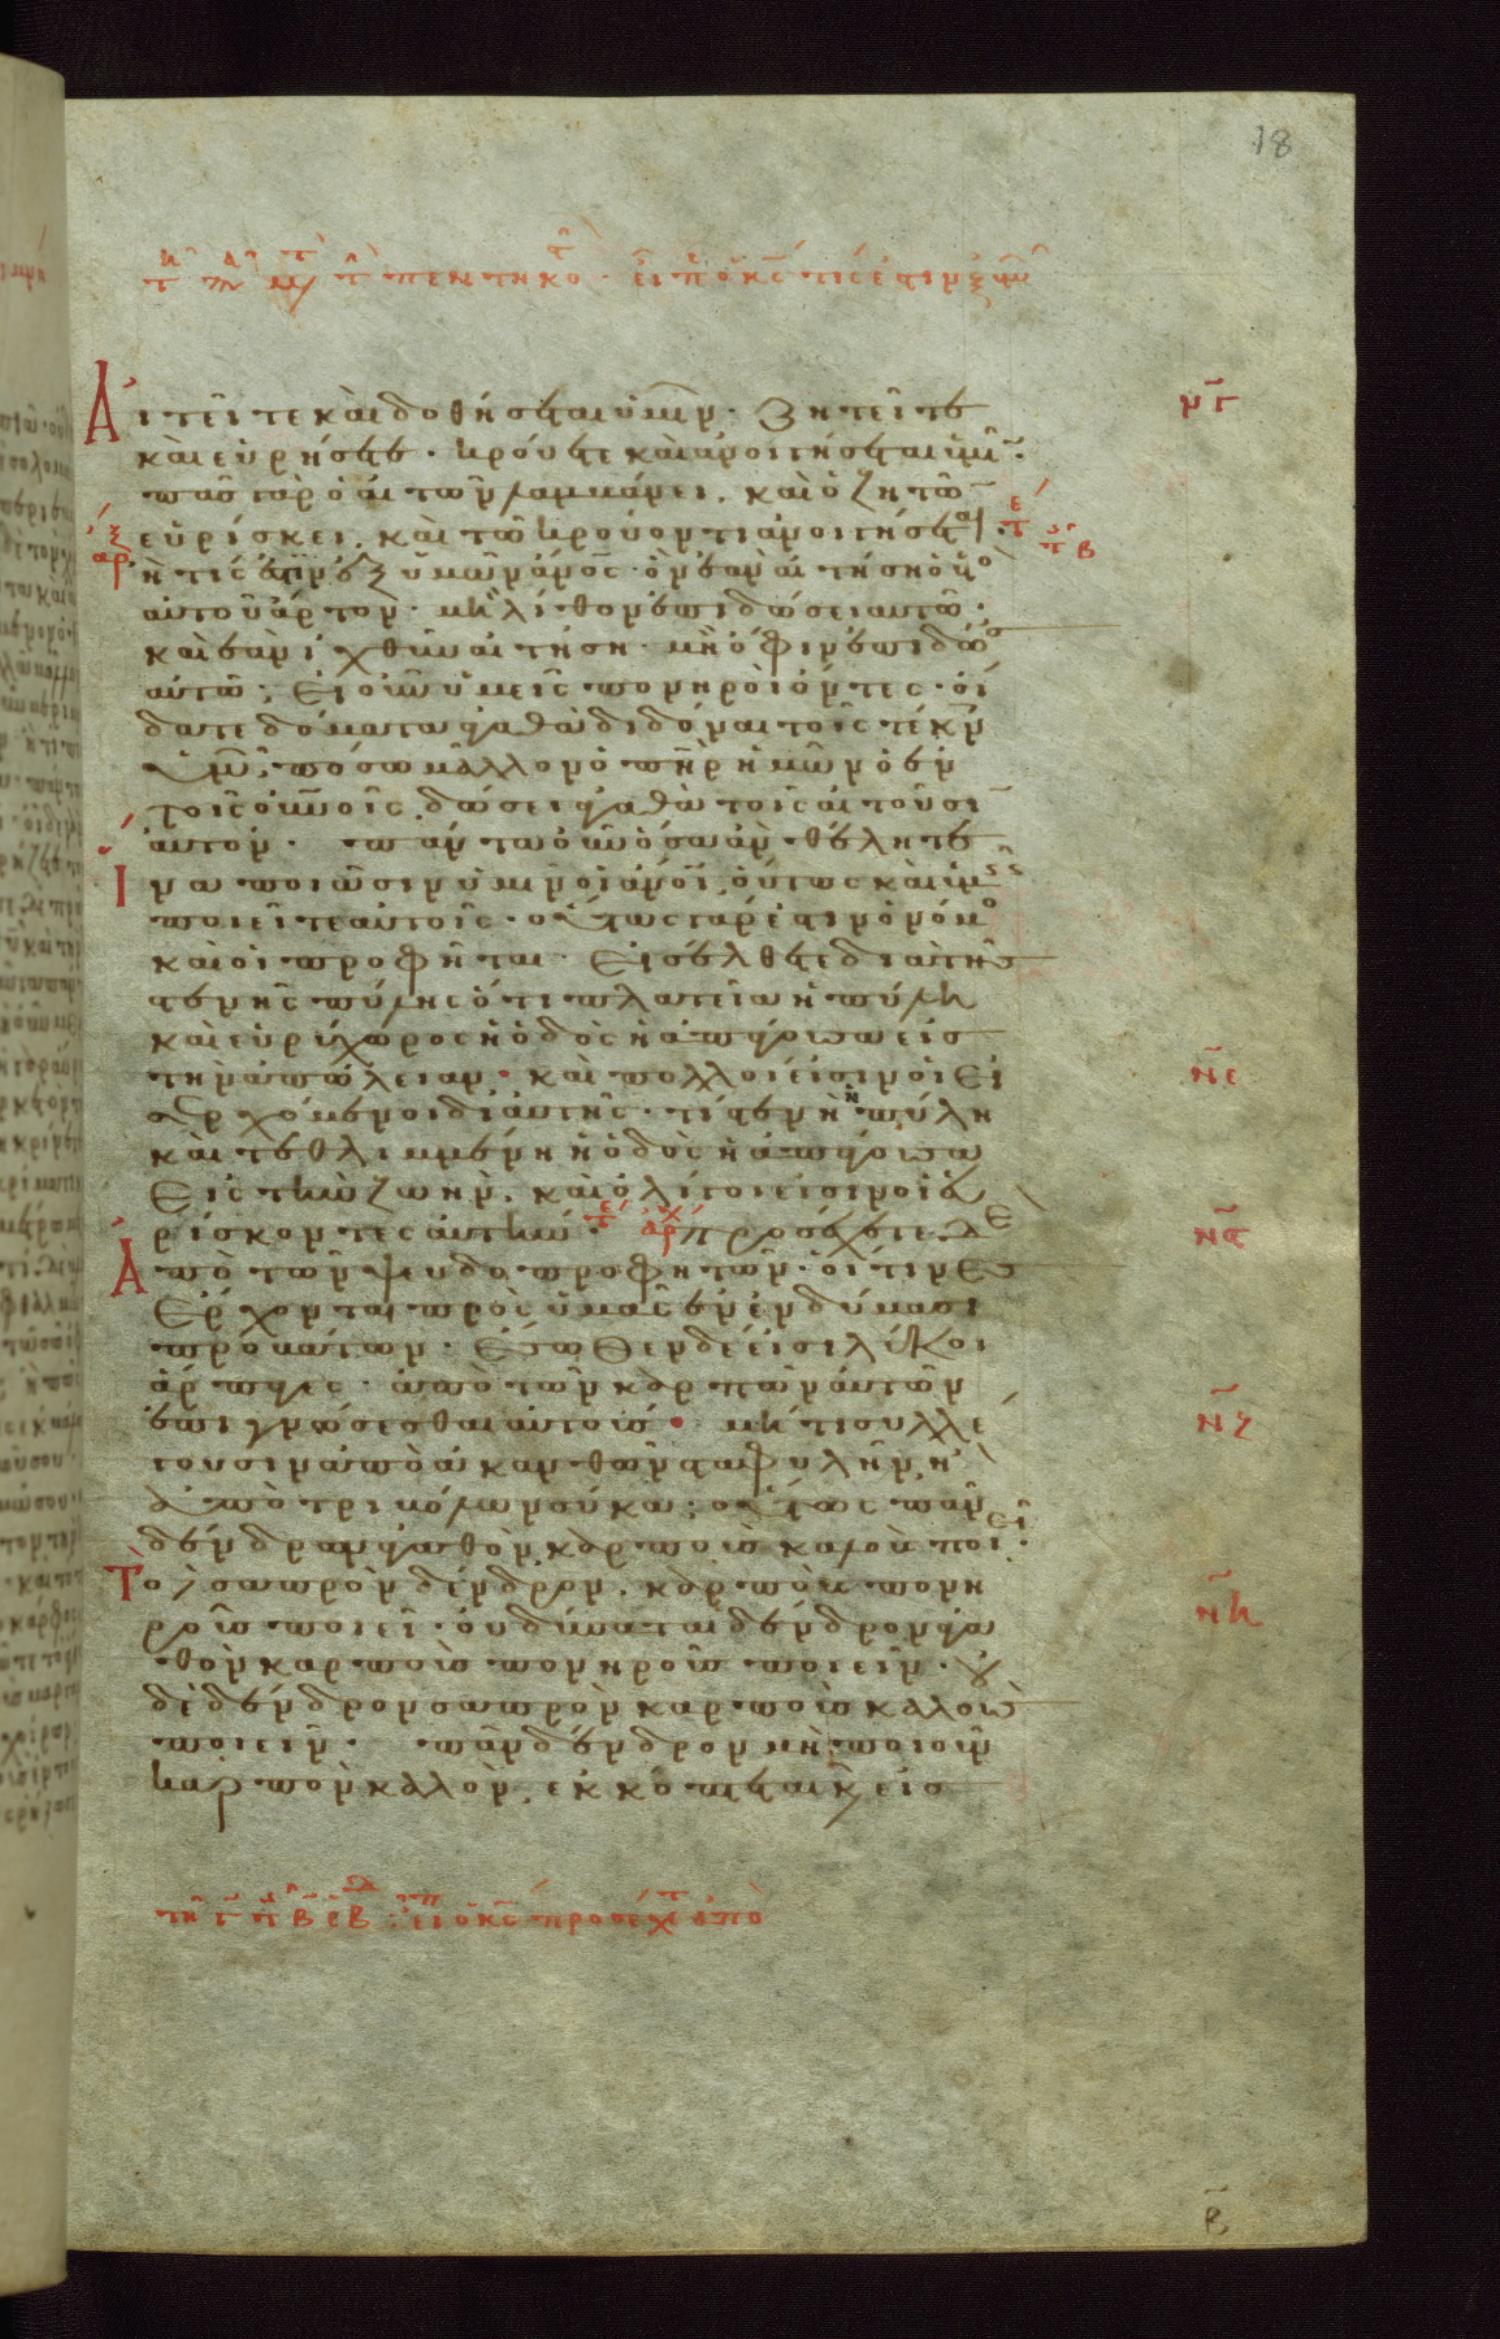 18
Αἰτεῖτε καὶ δοθήσεται ὑμῖν· Ζητεῖτε
καὶ εὑρήσετε· κρούετε καὶ ἀνοιγήσεται ὑμῖ
πᾶς γὰρ ὁ αἰτῶν λαμβάνει. καὶ ὁ ζητῶ
εὑρίσκει. καὶ τῶ κρούοντι ἀνοιγήσεται.
ἢ τίς ἐστιν ἐξ ὑμῶν ἄνος· ὃν ἐὰν αἰτήση ὁ υἱο
αὐτοῦ ἄρτον· μὴ λίθον ἐπιδώσει αυτῶ·
καὶ ἐὰν ἰχθὺν αἰτήση· μὴ ὄφιν ἐπιδώσ
αὐτῶ; Εἰ οὖν ὑμεῖς πονηροὶ ὄντες· οἴ
δατε δόματα ἀγαθὰ διδόναι τοῖς τέκν
ὑμῶ· πόσω μᾶλλον ὁ πηρ ἡμῶν ὁ ἐν
τοῖς οὐνοῖς δώσει ἀγαθὰ τοῖς αἰτοῦσι
αὐτόν· πάντα οὖν ὅσα ἂν θέλητε
ἵνα ποιῶσιν ὑμῖν οἱ ἄνοι, οὕτως καὶ ὑμεῖς
ποιεῖτε αὐτοῖς· οὗτως γάρ ἐστιν ὁ νόμο
καὶ οἱ προφῆται· Εἰσέλθετε διὰ τῆς
στενῆς πύλης ὅτι πλατεῖα ἡ πύλη
καὶ εὐρύχωρος ἡ ὁδὸς ἡ ἀπάγουσα εἰς
τὴν ἀπώλειαν· καὶ πολλοί εἰσιν οἱ Εἰ
σερχόμενοι δι' αὐτῆς· τί στενὴ ἡ πύλη
καὶ τεθλιμμένη ἡ ὁδὸς ἡ ἀπάγουσα
Εἰς τὴν ζωήν. καὶ ὀλίγοι εἰσὶν οἱ εὑ
ρίσκοντες αὐτήν· προσέχετε δὲ
Ἀπὸ τῶν ψευδοπροφητῶν· οἵτινες
Ἔρχονται πρὸς ὑμᾶς ἐν ἐνδύμασι
προβάτων· Ἔσωθεν δέ εἰσι λύκοι
ἅρπαγες· ἀπὸ τῶν καρπῶν αὐτῶν
ἐπιγνώσεσθαι αὐτούς· μή τι συλλέ
γουσιν ἀπὸ ἀκανθῶν σταφυλὴν, ἢ
ἀπὸ τριβόλων σύκα; οὕτως πᾶν
δένδραν ἀγαθὸν, καρποὺς καλοὺ ποιεῖ·
Τὸ δὲ σαπρὸν δένδρον. καρποὺς πονη
ροὺς ποιεῖ· οὐ δύναται δένδρον ἀγα
θὸν καρποὺς πονηροὺς ποιεῖν· οὐ
δὲ δένδρον σαπρὸν καρποὺς καλοὺς
ποιεῖν· πᾶν δένδρον μὴ ποιοῦν
καρπὸν καλὸν, ἐκκόπτεται κ εἰς